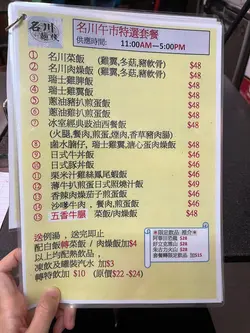 名川
名川午市特選套餐
供應時間: 11:00AM—5:00PM
① 名川菜飯 (雞翼,多菇,豬軟骨) $48
② 名川肉燥飯 (雞翼,多菇,豬軟骨) $48
③ 瑞士雞脾飯 $48
④ 瑞士雞翼飯 $48
⑤ 蔥油雞扒煎蛋飯 $48
⑥ 蔥油豬扒煎蛋飯 $48
⑦ 冰室經典豉油西餐飯 $48
(火腿,餐肉,煎蛋,煙肉,香草豬肉腸)
⑧ 鹵水腩仔,瑞士雞翼,溏心蛋肉燥飯 $48
⑨ 日式牛丼飯 $46
⑩ 日式豚丼飯 $46
⑪ 粟米汁雞絲鳳尾蝦飯 $46
⑫ 薄牛扒煎蛋日式照燒汁飯 $49
⑬ 香辣肉燥茄子煎蛋飯 $46
⑭ 沙嗲牛肉,餐肉,煎蛋飯 $46
⑮ 五香牛腸 菜飯/肉燥飯 $48
送例湯,送完即止
配白飯轉菜飯/肉燥飯加$4
以上均配熱飲品,
凍飲及罐裝汽水 加$3
轉特飲加 $10 (原價$22 -$24)